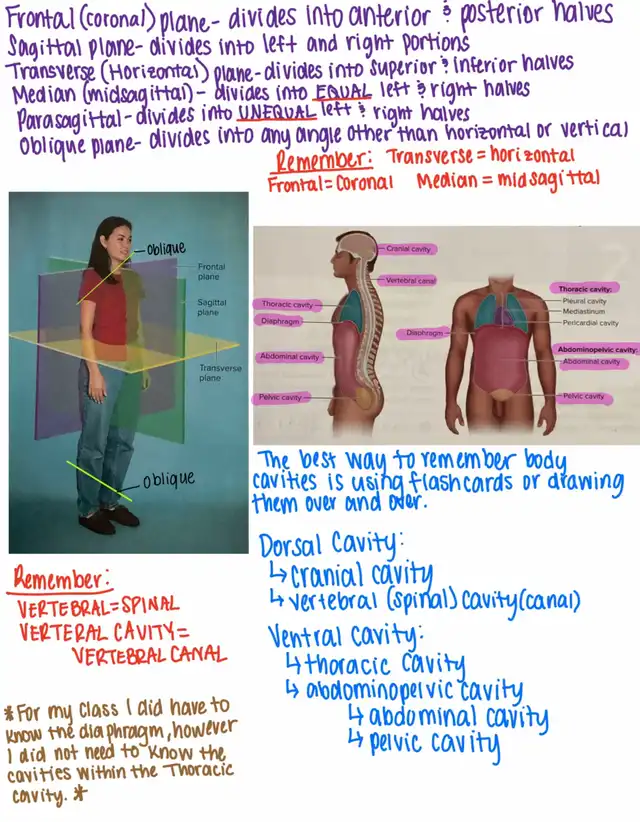 Frontal (coronal) plane- divides into anterior & posterior halves
Sagittal plane- divides into left and right portions
Transverse (Horizontal) plane- divides into superior & inferior halves
Median (midsagittal)- divides into EQUAL left & right halves
Parasagittal- divides into UNEQUAL left & right halves
Oblique plane- divides into any angle other than horizontal or vertical
Remember: Transverse = horizontal
Frontal = Coronal Median = midsagittal
oblique
Frontal plane
Sagittal plane
Transverse plane
oblique
Cranial cavity
Vertebral canal
Thoracic cavity
Diaphragm
Abdominal cavity
Pelvic cavity
Thoracic cavity:
Pleural cavity
Mediastinum
Pericardial cavity
Diaphragm
Abdominopelvic cavity:
Abdominal cavity
Pelvic cavity
The best way to remember body
cavities is using flashcards or drawing
them over and over.
Dorsal Cavity:
↳ cranial cavity
↳ vertebral (spinal) cavity (canal)
Ventral Cavity:
↳ thoracic cavity
↳ abdominopelvic cavity
↳ abdominal cavity
↳ pelvic cavity
Remember:
VERTEBRAL = SPINAL
VERTERAL CAVITY =
VERTEBRAL CANAL
*For my class I did have to
know the diaphragm, however
I did not need to know the
cavities within the Thoracic
cavity.*